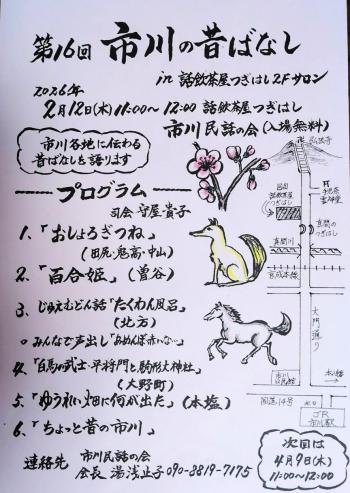 第16回 市川の昔ばなし
in 話飲茶屋つぎはし2Fサロン
2026年
2月12日(木)11:00~12:00 話飲茶屋つぎはし
市川民話の会(入場無料)
市川各地に伝わる
昔ばなしを語ります
プログラム
司会・守屋・貴子
1、「おしょろぎつね」
(田尻・鬼高・中山)
2、「百合姫」(曽谷)
3、じゅえむどん話「たくわん風呂」
(北方)
○みんなで声出し「あめんぼ赤いな…」
4、「白馬の武士・平将門と駒形大神社」
(大野町)
5、「ゆうれい畑に何が出た」(本塩)
6、「ちょっと昔の市川」
連絡先 市川民話の会
会長 湯浅止子 090-8819-7175
弘法寺
手児奈
霊神堂
話飲茶屋
つぎはし
真間の
つぎはし
真間川
京成本線
大門通り
市川
国道14号
JR
市川駅
次回は
4月9日(木)
11:00~12:00